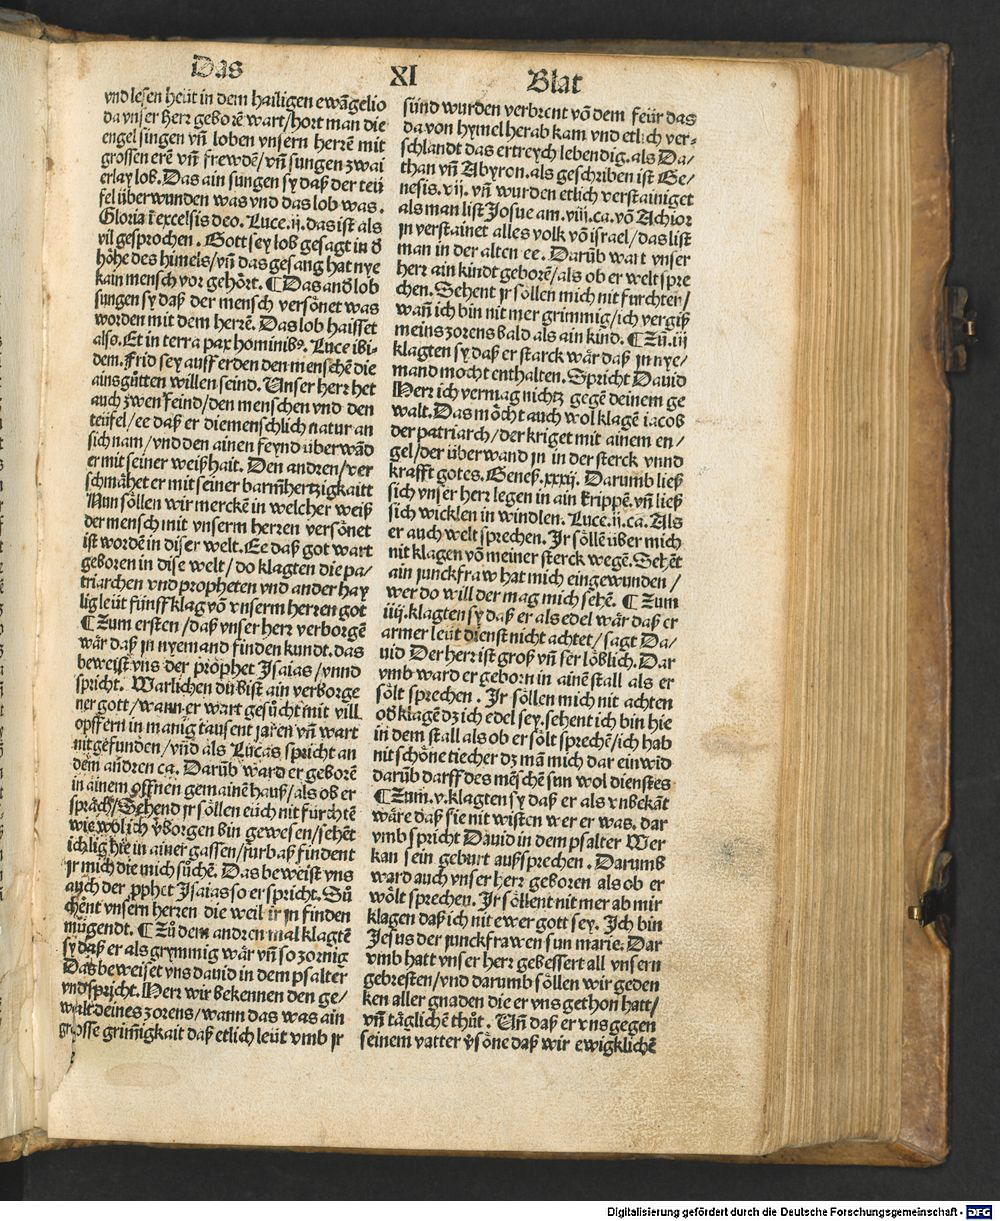 Das XI Blat
vnd lesen heüt in dem hailigen ewãgelio
da vnser herr geborẽ wart/hort man die
engel singen vñ loben vnsern herrẽ mit
grossen erẽ vñ frewdẽ/vñ sungen zwai
erlay lob. Das ain sungen sy daß der teü
fel überwunden was vnd das lob was.
Gloria ĩ excelsis deo. Luce.ij. das ist als
vil gesprochen. Gott sey lob gesagt in d̕
höhe des himels/vñ das gesang hat nye
kain mensch vor gehört. ¶ Das and̕ lob
sungen sy daß der mensch versönet was
worden mit dem herrẽ. Das lob haisset
also. Et in terra pax hominibꝰ. Luce ibi-
dem. Frid sey auff erden den menschẽ die
ains gůtten willen seind. Unser herr het
auch zwen feind/den menschen vnd den
teüfel/ee daß er die menschlich natur an
sich nam/vnd den ainen feynd überwãd
er mit seiner weißhait. Den andren/ver
schmähet er mit seiner barm̃hertzigkaitt
Nun söllen wir merckẽ in welcher weiß
der mensch mit vnserm herren versönet
ist wordẽ in diser welt. Ee daß got wart
geboren in dise welt/do klagten die pa-
triarchen vnd propheten vnd ander hay
lig leüt fünff klag vō vnserm herren got
¶ Zum ersten/daß vnser herr verborgẽ
wär daß jn nyemand finden kundt. das
beweist vns der prophet Isaias/vnnd
spricht. Warlichen du bist ain verborge
ner gott/wann er wart gesůcht mit vill
opffern in manig tausent jaren vñ wart
nit gefunden/vnd als Lucas spricht an
dem andren ca. Darũb ward er geborẽ
in ainem offnen gemainẽ hauß/als ob er
spräch/Sehend jr söllen eüch nit fürchtẽ
wie wol ich v̕borgen bin gewesen/sehẽt
ich lig hie in ainer gassen/fürbaß findent
jr mich die mich sůchẽ. Das beweist vns
auch der ꝓphet Isaias so er spricht. Sů
chent vnsern herren die weil ir jn finden
mügendt. ¶ Zů dem andren mal klagtẽ
sy daß er als grymmig wär vñ so zornig
Das beweiset vns dauid in dem psalter
vnd spricht. Herr wir bekennen den ge/
walt deines zorens/wann das was ain
grosse grim̃igkait daß etlich leüt vmb jr
sünd wurden verbrent vō dem feür das
da von hymel herab kam vnd etlich ver-
schlandt das ertreych lebendig. als Da/
than vñ Abyron. als geschriben ist Ge/
nesis. vij. vñ wurden etlich verstainiget
als man list Josue am. viij. ca. vō Achior
jn verstainet alles volk vō israel/das list
man in der alten ee. Darũb wart vnser
herr ain kindt geborẽ/als ob er welt spre
chen. Sehent jr söllen mich nit fürchten/
wañ ich bin nit mer grimmig/ich vergiß
meins zorens bald als ain kind. ¶ Zů. iij
klagten sy daß er starck wär daß jn nye/
mand mocht enthalten. Spricht Dauid
Herr ich vermag nichtz gegẽ deinem ge
walt. Das möcht auch wol klagẽ iacob
der patriarch/der kriget mit ainem en/
gel/der überwand jn in der sterck vnnd
krafft gotes. Geneß. xxxij. Darumb ließ
sich vnser herr legen in ain krippẽ. vñ ließ
sich wicklen in windlen. Luce. ij. ca. Als
er auch welt sprechen. Jr söllẽ über mich
nit klagen vō meiner sterck wegẽ. Sehẽt
ain junckfraw hat mich eingewunden/
wer do will der mag mich sehẽ. ¶ Zum
iiij. klagten sy daß er als edel wär daß er
armer leüt dienst nicht achtet/sagt Da/
uid Der herr ist groß vñ ser löblich. Dar
vmb ward er geborn in ainẽ stall als er
sölt sprechen. Jr söllen mich nit achten
od̕ klagẽ dz ich edel sey. sehent ich bin hie
in dem stall als ob er sölt sprechẽ/ich hab
nit schöne tiecher dz mã mich dar ein wid
darũb darff des mẽschẽ sun wol dienstes
¶ Zum. v. klagten sy daß er als vnbekãt
wäre daß sie nit wisten wer er was. dar
vmb spricht Dauid in dem psalter Wer
kan sein geburt außsprechen. Darumb
ward auch vnser herr geboren als ob er
wölt sprechen. Jr söllent nit mer ab mir
klagen daß ich nit ewer gott sey. Ich bin
Jesus der junckfrawen sun marie. Dar
vmb hatt vnser herr gebessert all vnsern
gebresten/vnd darumb söllen wir geden
ken aller gnaden die er vns gethon hatt/
vñ täglichẽ thůt. Uñ daß er vns gegen
seinem vatter v̕söne daß wir ewigklichẽ
Digitalisierung gefördert durch die Deutsche Forschungsgemeinschaft - DFG